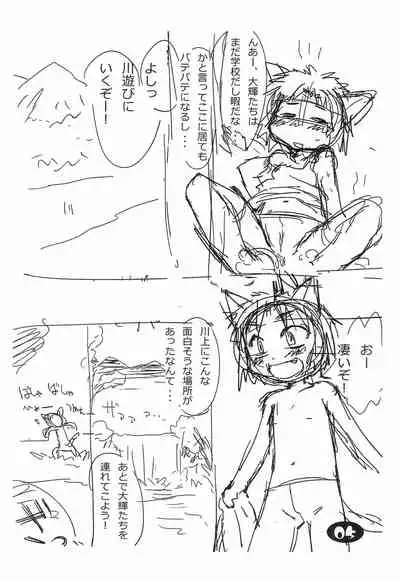 んあー、大輝たちは
まだ学校だし暇だな
かと言ってここに居ても
バテバテになるし・・・
よしっ
川遊びに
いくぞー！
おー
凄いぞ！
川上にこんな
面白そうな場所が
あったなんて・・・
ばしゅ
あとで大輝たちを
連れてこよう！
04